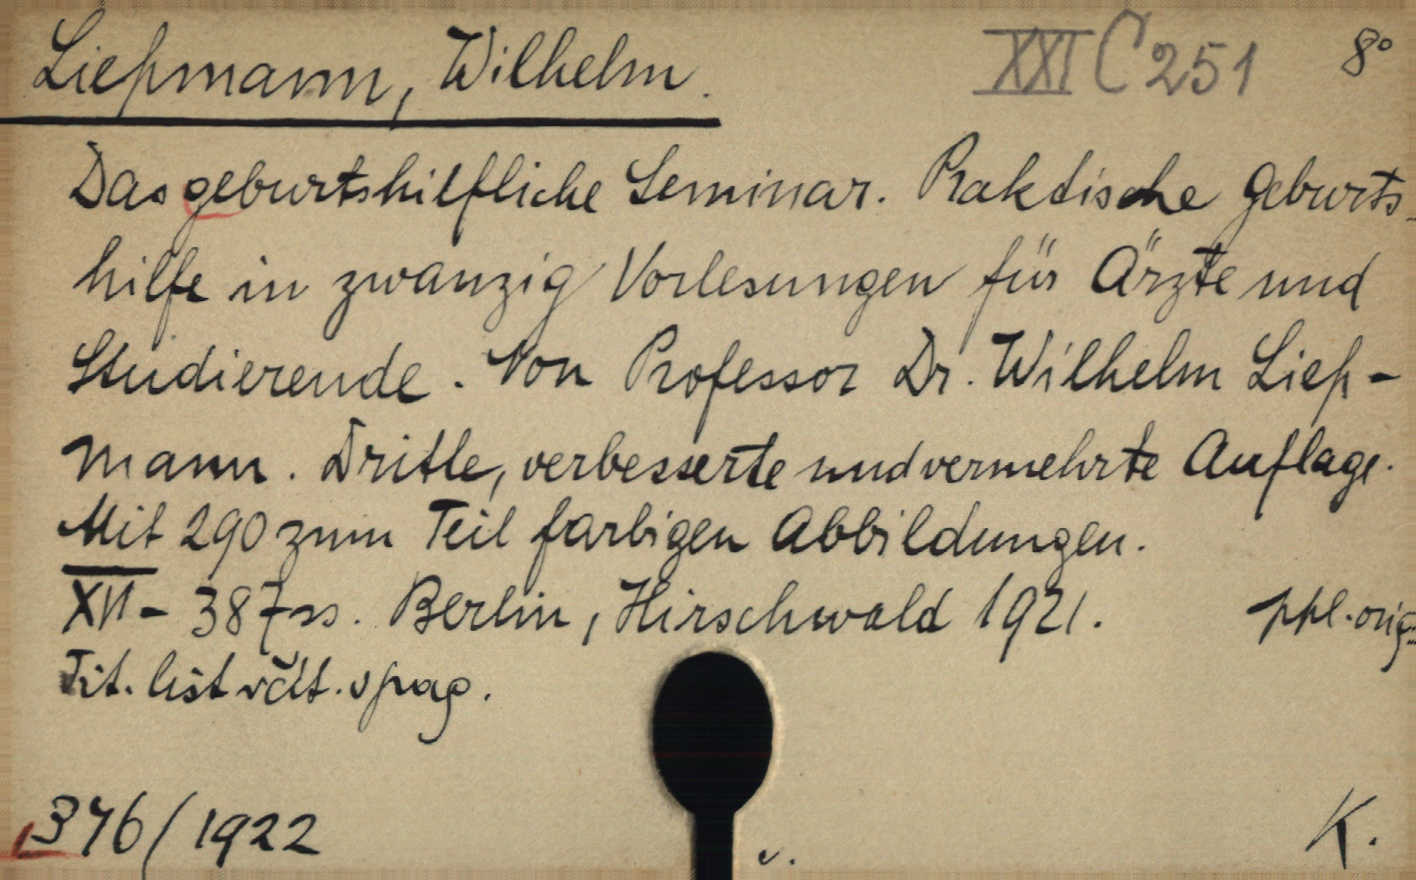 Liepmann, Wilhelm. XXI C 251 8°
Das geburtshilfliche Seminar. Praktische Geburts-
hilfe in zwanzig Vorlesungen für Ärzte und
Studierende. Von Professor Dr. Wilhelm Liep-
mann. Dritte, verbesserte und vermehrte Auflage.
Mit 290 zum Teil farbigen Abbildungen.
XII - 387 ss. Berlin, Hirschwald 1921. ppl. orig.
Tit. list včít. v pag.
376/1922 v. K.